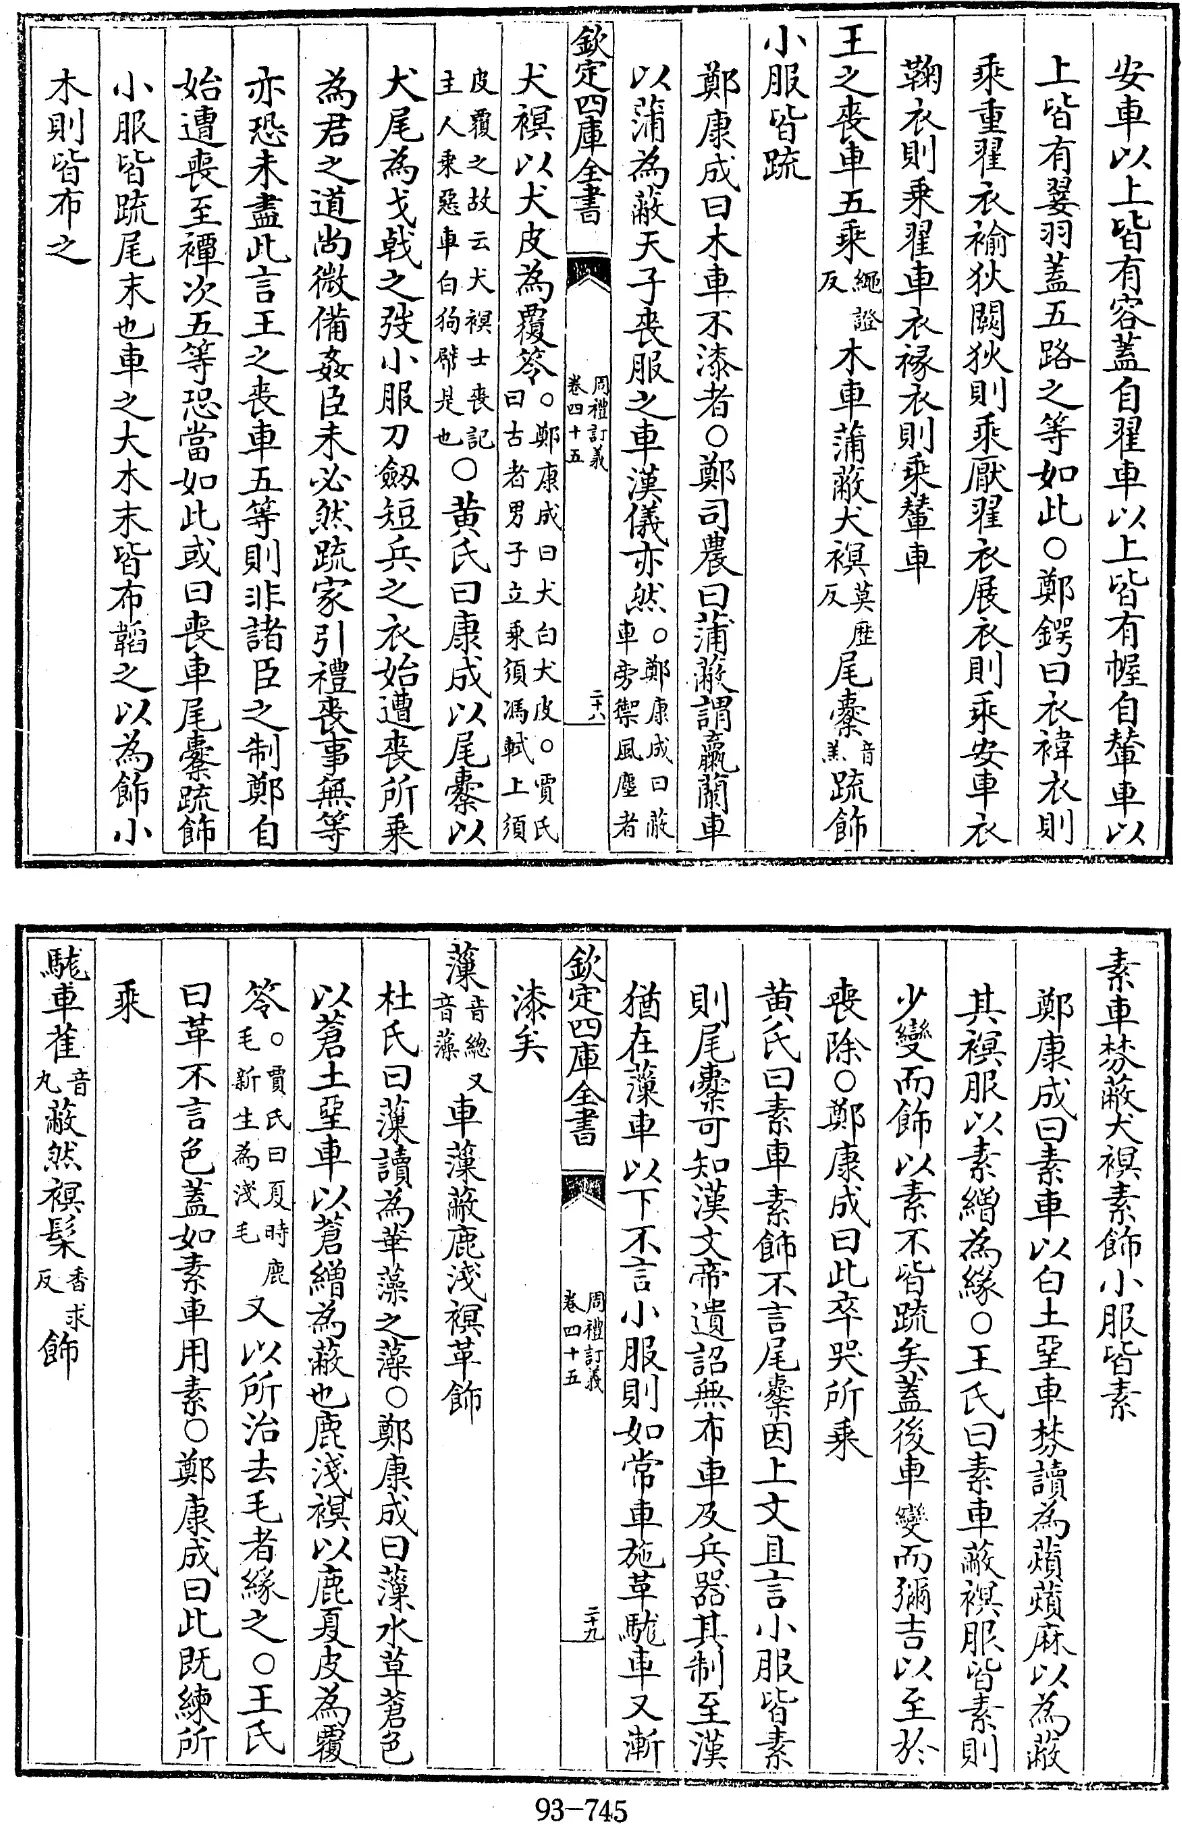 安車以上皆有容蓋自翟車以上皆有幄自輦車以
上皆有翣羽蓋五路之等如此○鄭鍔曰衣褘衣則
乘重翟衣褕狄闕狄則乘厭翟衣展衣則乘安車衣
鞠衣則乘翟車衣祿衣則乘輦車
王之喪車五乘繩證反木車蒲蔽犬𧜀莫歴反尾櫜音羔疏飾
小服皆疏
鄭康成曰木車不漆者○鄭司農曰蒲蔽謂臝蘭車
以蒲為蔽天子喪服之車漢儀亦然○鄭康成曰蔽車旁禦風塵者
欽定四庫全書 周禮訂義卷四十五 二十八
犬𧜀以犬皮為覆笭○鄭康成曰犬白犬皮○賈氏曰古者男子立乘須馮軾上須
皮覆之故云犬𧜀士喪記主人乘惡車白狗幦是也○黄氏曰康成以尾櫜以
犬尾為戈戟之弢小服刀劒短兵之衣始遭喪所乘
為君之道尚微備姦臣未必然疏家引禮喪事無等
亦恐未盡此言王之喪車五等則非諸臣之制鄭自
始遭喪至禫次五等恐當如此或曰喪車尾櫜疏飾
小服皆疏尾末也車之大木末皆布韜之以為飾小
木則皆布之
素車棼蔽犬𧜀素飾小服皆素
鄭康成曰素車以白土堊車棼讀為薠薠麻以為蔽
其𧜀服以素繒為緣○王氏曰素車蔽𧜀服皆素則
少變而飾以素不皆疏矣蓋後車變而彌吉以至於
喪除○鄭康成曰此卒哭所乘
黄氏曰素車素飾不言尾櫜因上文且言小服皆素
則尾櫜可知漢文帝遺詔無布車及兵器其制至漢
猶在薻車以下不言小服則如常車施革駹車又漸
欽定四庫全書 周禮訂義卷四十五 二十九
漆矣
薻音總又音藻車薻蔽鹿淺𧜀革飾
杜氏曰薻讀為華藻之藻○鄭康成曰薻水草蒼色
以蒼土堊車以蒼繒為蔽也鹿淺𧜀以鹿夏皮為覆
笭○賈氏曰夏時鹿毛新生為淺毛又以所治去毛者緣之○王氏
曰革不言色蓋如素車用素○鄭康成曰此既練所
乘
駹車雈音丸蔽然𧜀髤香求反飾
93-745